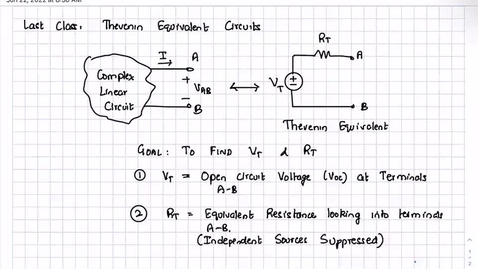 Last Class: Thevenin Equivalent Circuits
I
A
+
VAB
-
B
Complex
Linear
Circuit
RT
A
VT
+
-
B
Thevenin Equivalent
Goal: To Find VT & RT
① VT = Open Circuit Voltage (Voc) at Terminals
A-B
② RT = Equivalent Resistance looking into terminals
A-B.
(Independent Sources Suppressed)